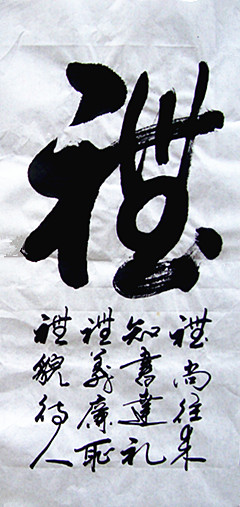 禮
禮尚往来
知書達礼
禮義廉耻
禮貌待人